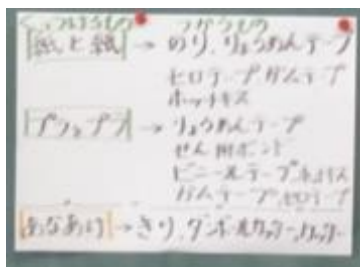 くっつけるもの つかうもの
紙と紙→のり、りょうめんテープ
セロテープ、ガムテープ
ホッチキス
プラとプラ→りょうめんテープ
せん用ボンド
ビニールテープ
ガムテープ、セロテープ
あなあけ→きり、ダンボールカッター、カッター